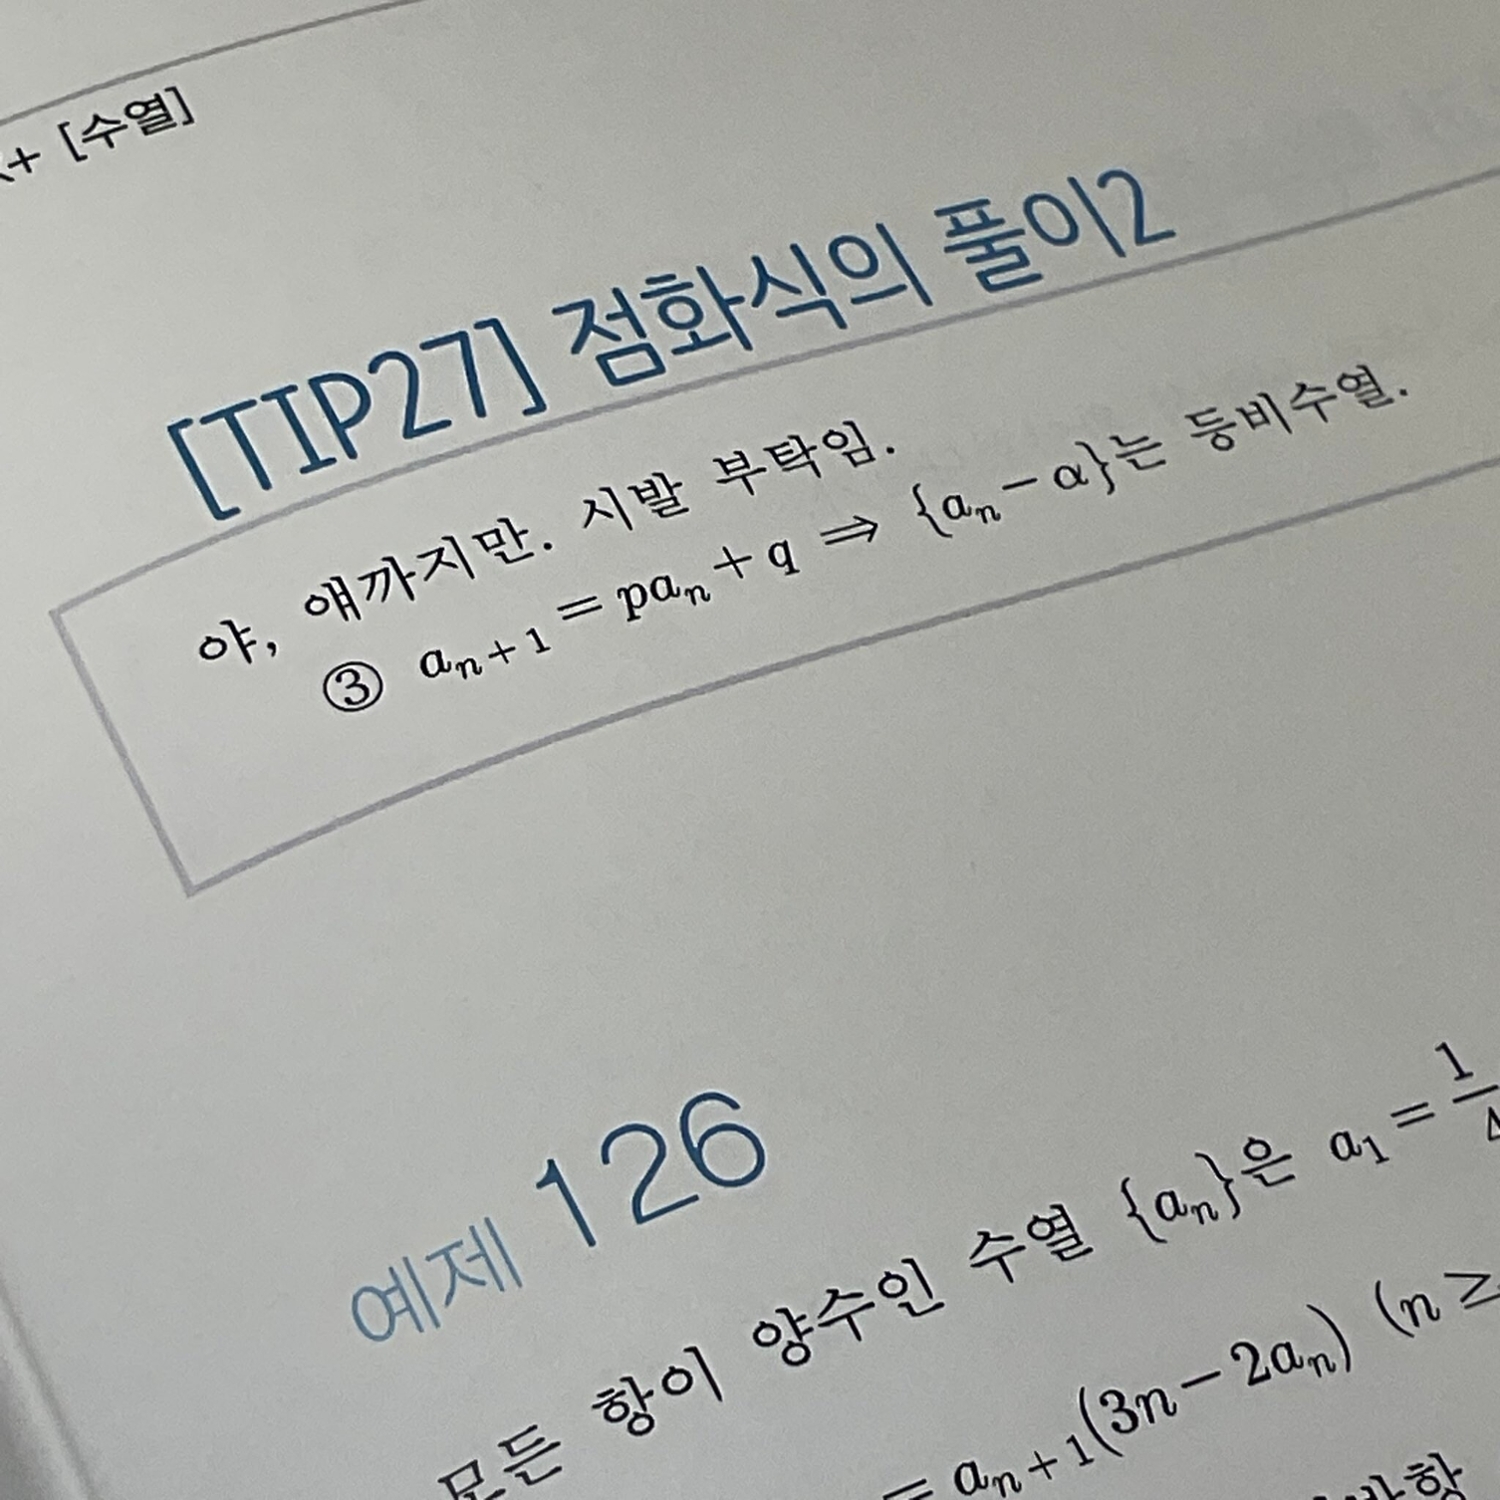 + [수열]
[TIP27] 점화식의 풀이2
야, 얘까지만. 시발 부탁임.
③ aₙ₊₁ = paₙ + q ⇒ {aₙ − α}는 등비수열.
예제 126
모든 항이 양수인 수열 {aₙ}은 a₁ = 1/4
= aₙ₊₁(3n − 2aₙ) (n ≥